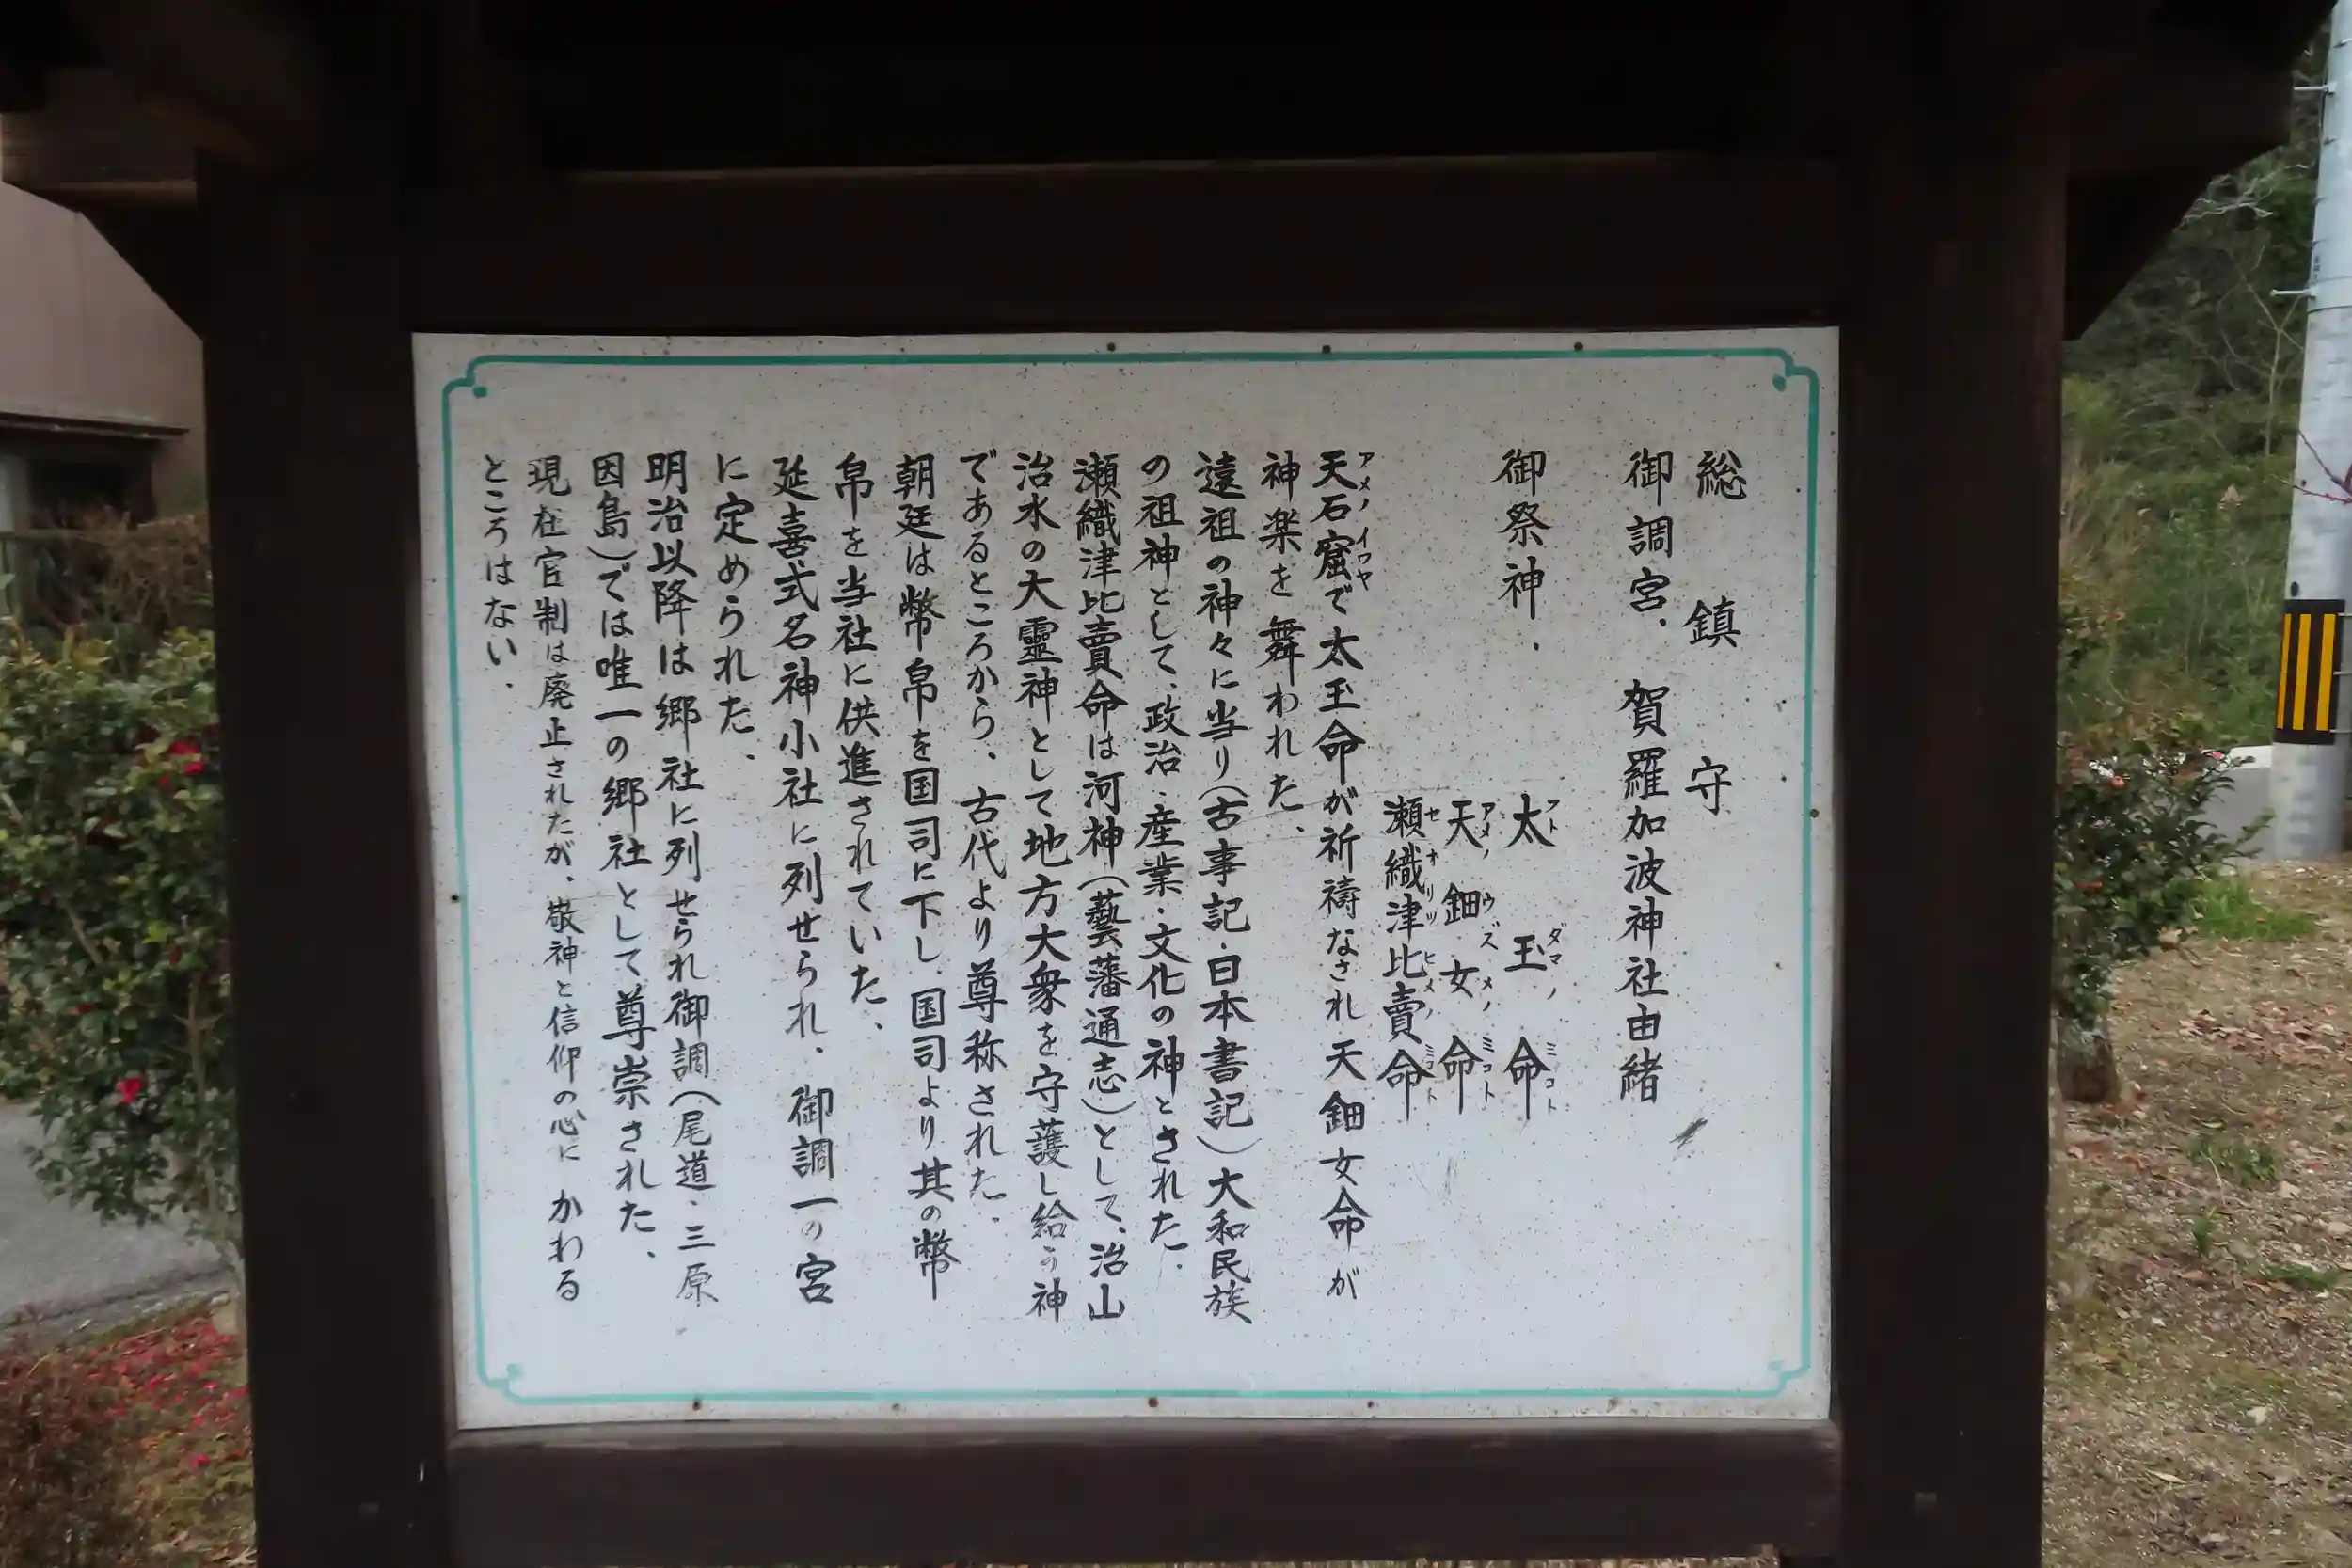 総鎮守
御調宮.賀羅加波神社由緒
御祭神.
太玉命
フトダマノミコト
天鈿女命
アメノウズメノミコト
瀬織津比賣命
セオリツヒメノミコト
天石窟で太玉命が祈禱なされ天鈿女命が
アメノイワヤ
神楽を舞われた、
遠祖の神々に当り(古事記・日本書記)大和民族
の祖神として、政治・産業・文化の神とされた.
瀬織津比賣命は河神(藝藩通志)として、治山
治水の大靈神として地方大衆を守護し給う神
であるところから、古代より尊称された.
朝廷は幣帛を国司に下し、国司より其の幣
帛を当社に供進されていた、
延喜式名神小社に列せられ、御調一の宮
に定められた、
明治以降は郷社に列せられ御調(尾道・三原
因島)では唯一の郷社として尊崇された、
現在官制は廃止されたが、敬神と信仰の心に かわる
ところはない.